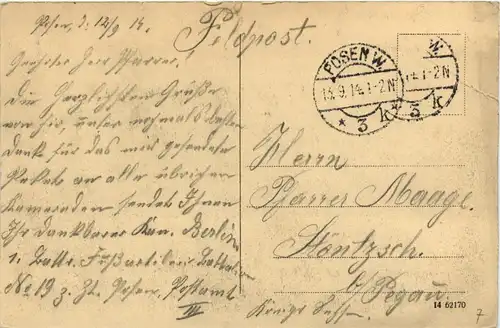 Posen, d. 12/9 14.
Feldpost.
Geehrter Herr Pfarrer!
Die herzlichsten Grüße
von hier, unser nochmals besten
Dank für das mir gesendete
Paket an alle übrigen
Kameraden sendet Ihnen
Ihr dankbarer Kan. Berlin
1. Battr. Fußartiller. Battalion
No 13 z. Zt. Posen, Postamt
III
POSEN W.
13.9.14.1-2N
* 3 k *
W.
14.1-2N
5 k
Herrn
Pfarrer Maage.
Stöntzsch.
b/ Pegau.
Königr. Sachsen
14 62170
7